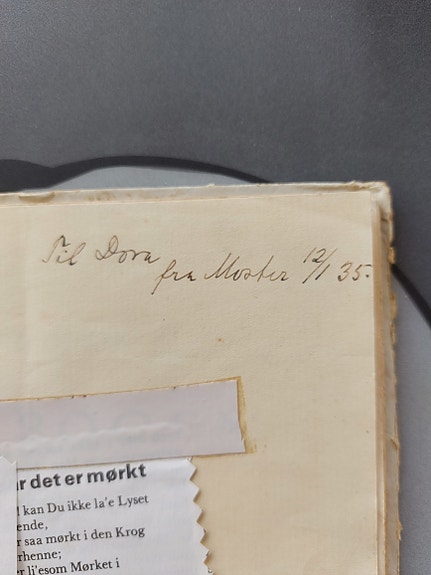 Til Dora
fra Moster 12/1 35.
r det er mørkt
kan Du ikke la'e Lyset
ende,
r saa mørkt i den Krog
rhenne;
er li'esom Mørket i